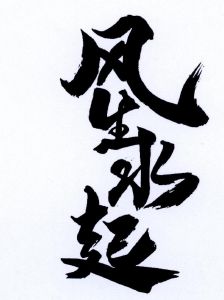 风生水起